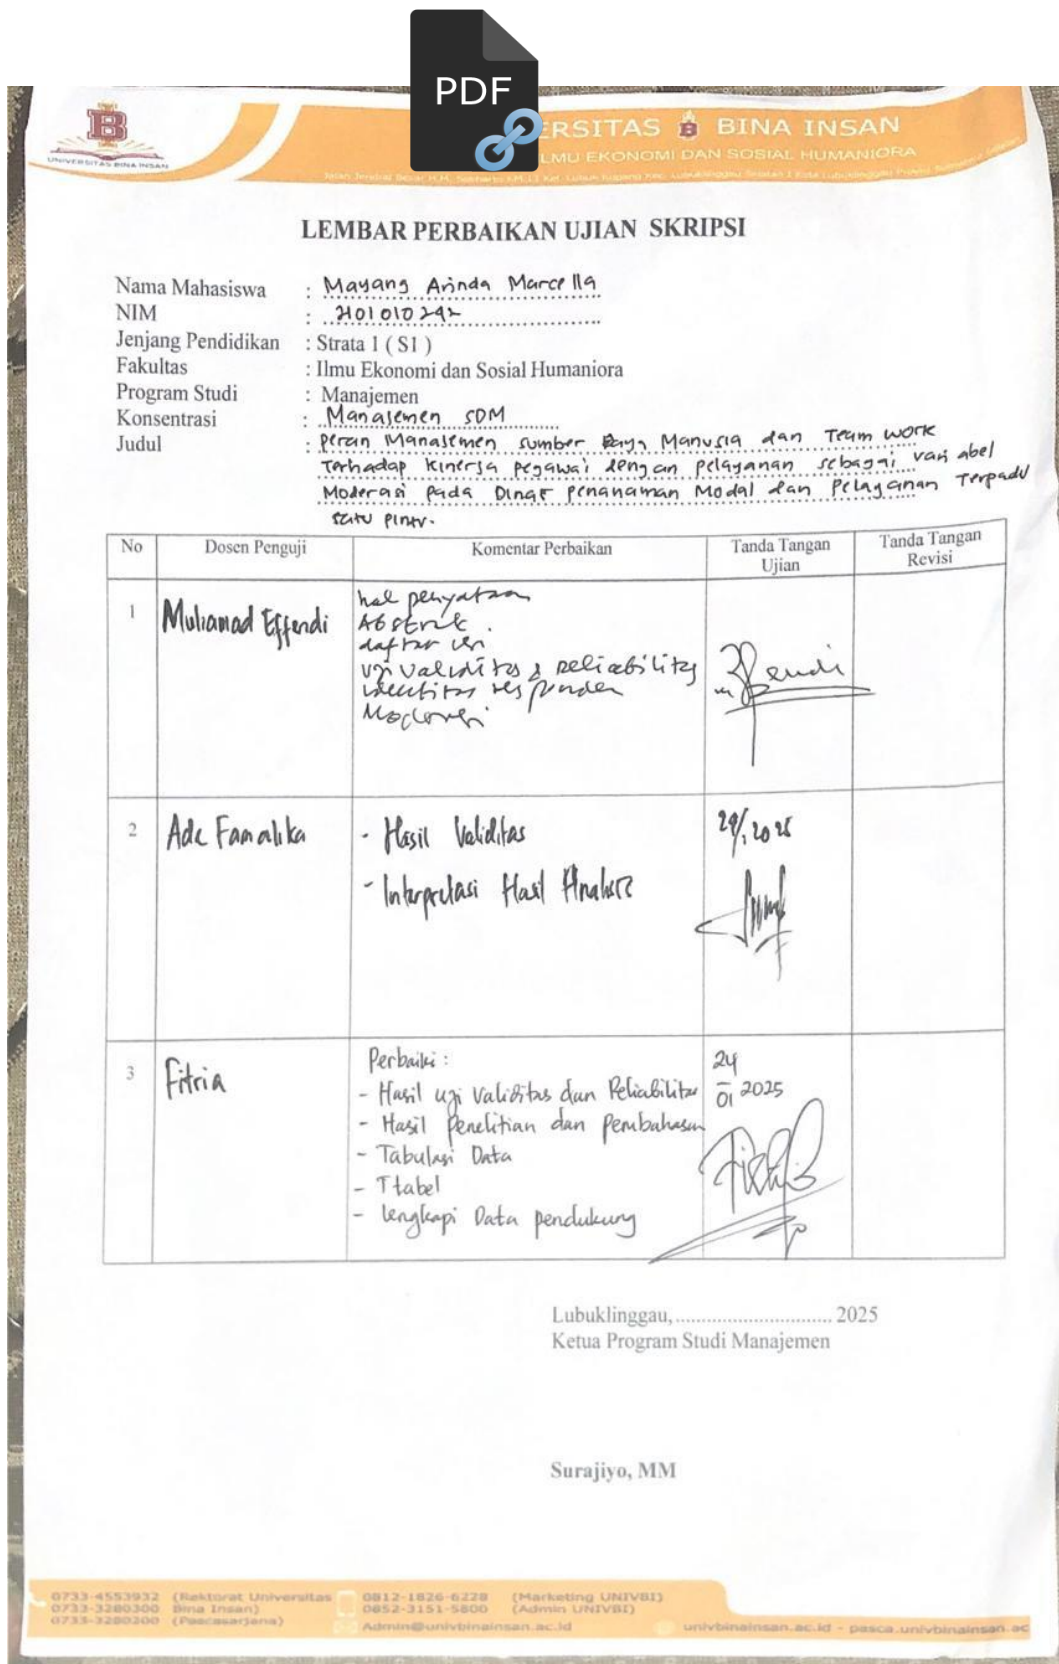 PDF
UNIVERSITAS BINA INSAN
ERSITAS BINA INSAN
ILMU EKONOMI DAN SOSIAL HUMANIORA
LEMBAR PERBAIKAN UJIAN SKRIPSI
Nama Mahasiswa : Mayang Arinda Marcella
NIM : 2101010292
Jenjang Pendidikan : Strata 1 ( S1 )
Fakultas : Ilmu Ekonomi dan Sosial Humaniora
Program Studi : Manajemen
Konsentrasi : Manajemen SDM
Judul : Peran Manajemen sumber Daya Manusia dan Team work
Terhadap Kinerja pegawai dengan pelayanan sebagai variabel
Moderasi Pada Dinas Penanaman Modal dan Pelayanan Terpadu
satu pintu.
No Dosen Penguji Komentar Perbaikan Tanda Tangan Ujian Tanda Tangan Revisi
1 Muhamad Effendi
hal penyataan
Abstrak.
daftar isi
uji validitas & reliability
identitas responden
Moderasi
2 Ade Famalika
- Hasil Validitas
- Interpretasi Hasil Analisis
3 Fitria
Perbaiki :
- Hasil uji Validitas dan Reliabilitas
- Hasil Penelitian dan Pembahasan
- Tabulasi Data
- Ttabel
- Lengkapi Data pendukung
24
01 2025
Lubuklinggau, .............................. 2025
Ketua Program Studi Manajemen
Surajiyo, MM
0733-4553932 (Rektorat Universitas
0733-3280300 Bina Insan)
0733-3280200 (Pascasarjana)
0812-1826-6228 (Marketing UNIVBI)
0852-3151-5800 (Admin UNIVBI)
Admin@univbinainsan.ac.id
univbinainsan.ac.id - pasca.univbinainsan.ac